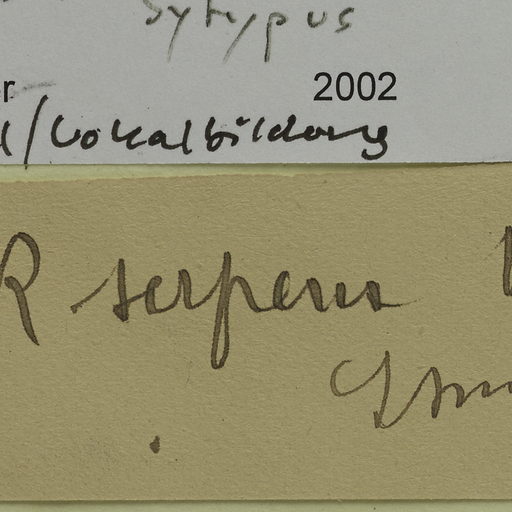 Sytypus
r 2002
l/Lokalbildung
R serpens